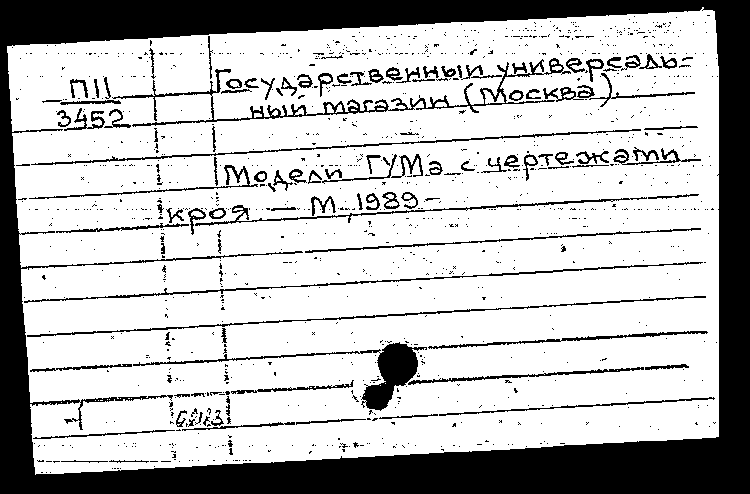 П11
3452
Государственный универсаль-
ный магазин (Москва).
Модели ГУМа с чертежами
кроя — М, 1989 –